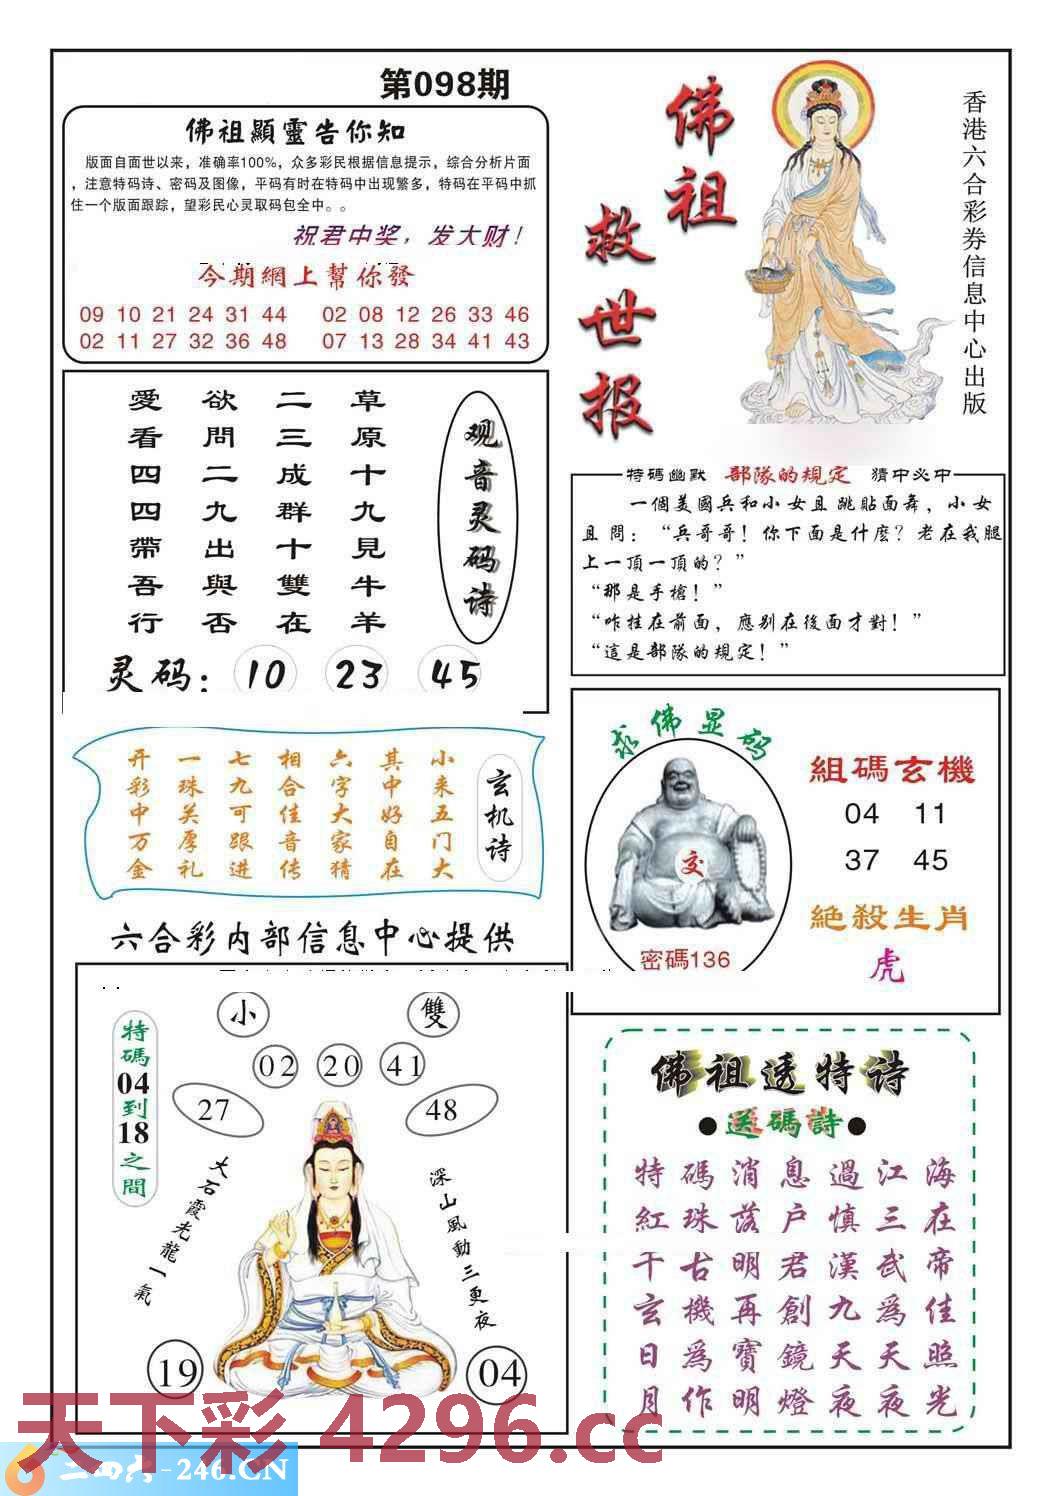 第098期
佛祖顯靈告你知
版面自面世以来，准确率100%，众多彩民根据信息提示，综合分析片面
，注意特码诗、密码及图像，平码有时在特码中出现繁多，特码在平码中抓
住一个版面跟踪，望彩民心灵取码包全中。。
祝君中奖，发大财！
今期網上幫你發
09 10 21 24 31 44 02 08 12 26 33 46
02 11 27 32 36 48 07 13 28 34 41 43
佛祖
救世报
香港六合彩券信息中心出版
观音灵码诗
草原十九見牛羊
二三成群十雙在
欲問二九出與否
愛看四四帶吾行
灵码：10 23 45
特碼幽默 部隊的規定 猜中必中
一個美國兵和小女且跳貼面舞，小女
且問：“兵哥哥！你下面是什麽？老在我腿
上一頂一頂的？”
“那是手槍！”
“咋挂在前面，應别在後面才對！”
“這是部隊的規定！”
玄机诗
小来五门大
其中好自在
六字大家猜
相合佳音传
七九可跟进
一珠关厚礼
开彩中万金
求佛显码
交
密碼136
組碼玄機
04 11
37 45
絶殺生肖
虎
六合彩内部信息中心提供
小 雙
02 20 41
27 48
特碼04到18之間
大石霞光龍一氣
深山風動三更夜
19 04
佛祖透特诗
●送碼詩●
特碼消息過江海
紅珠落户慎三在
千古明君漢武帝
玄機再創九為佳
日為寶鏡天天照
月作明燈夜夜光
天下彩 4296.cc
二四六-246.CN